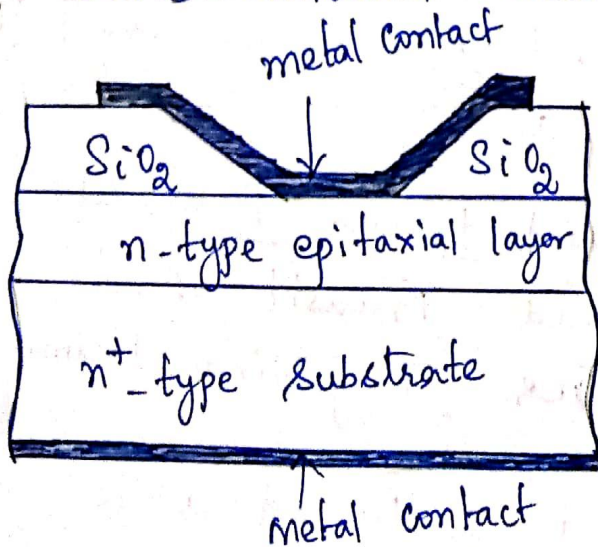 metal contact
SiO₂ SiO₂
n-type epitaxial layer
n⁺-type substrate
metal contact